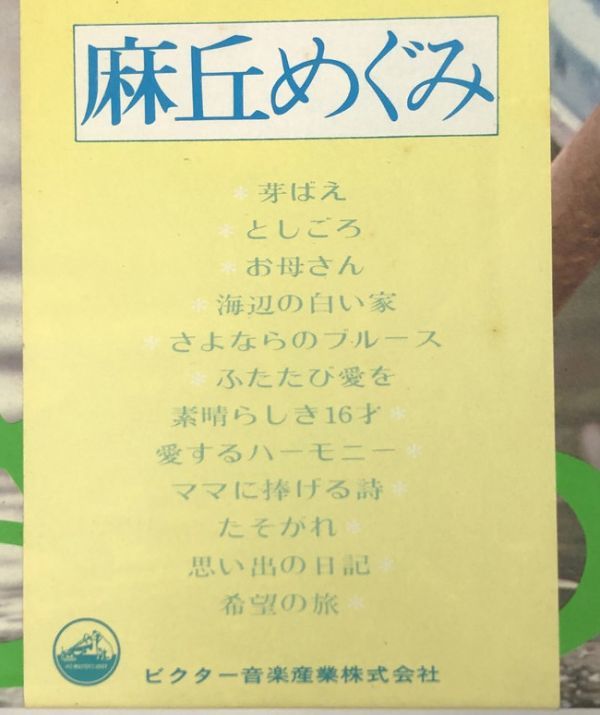 麻丘めぐみ
*芽ばえ
*としごろ
*お母さん
*海辺の白い家
*さよならのブルース
*ふたたび愛を
素晴らしき16才*
愛するハーモニー*
ママに捧げる詩*
たそがれ*
思い出の日記*
希望の旅*
ビクター音楽産業株式会社